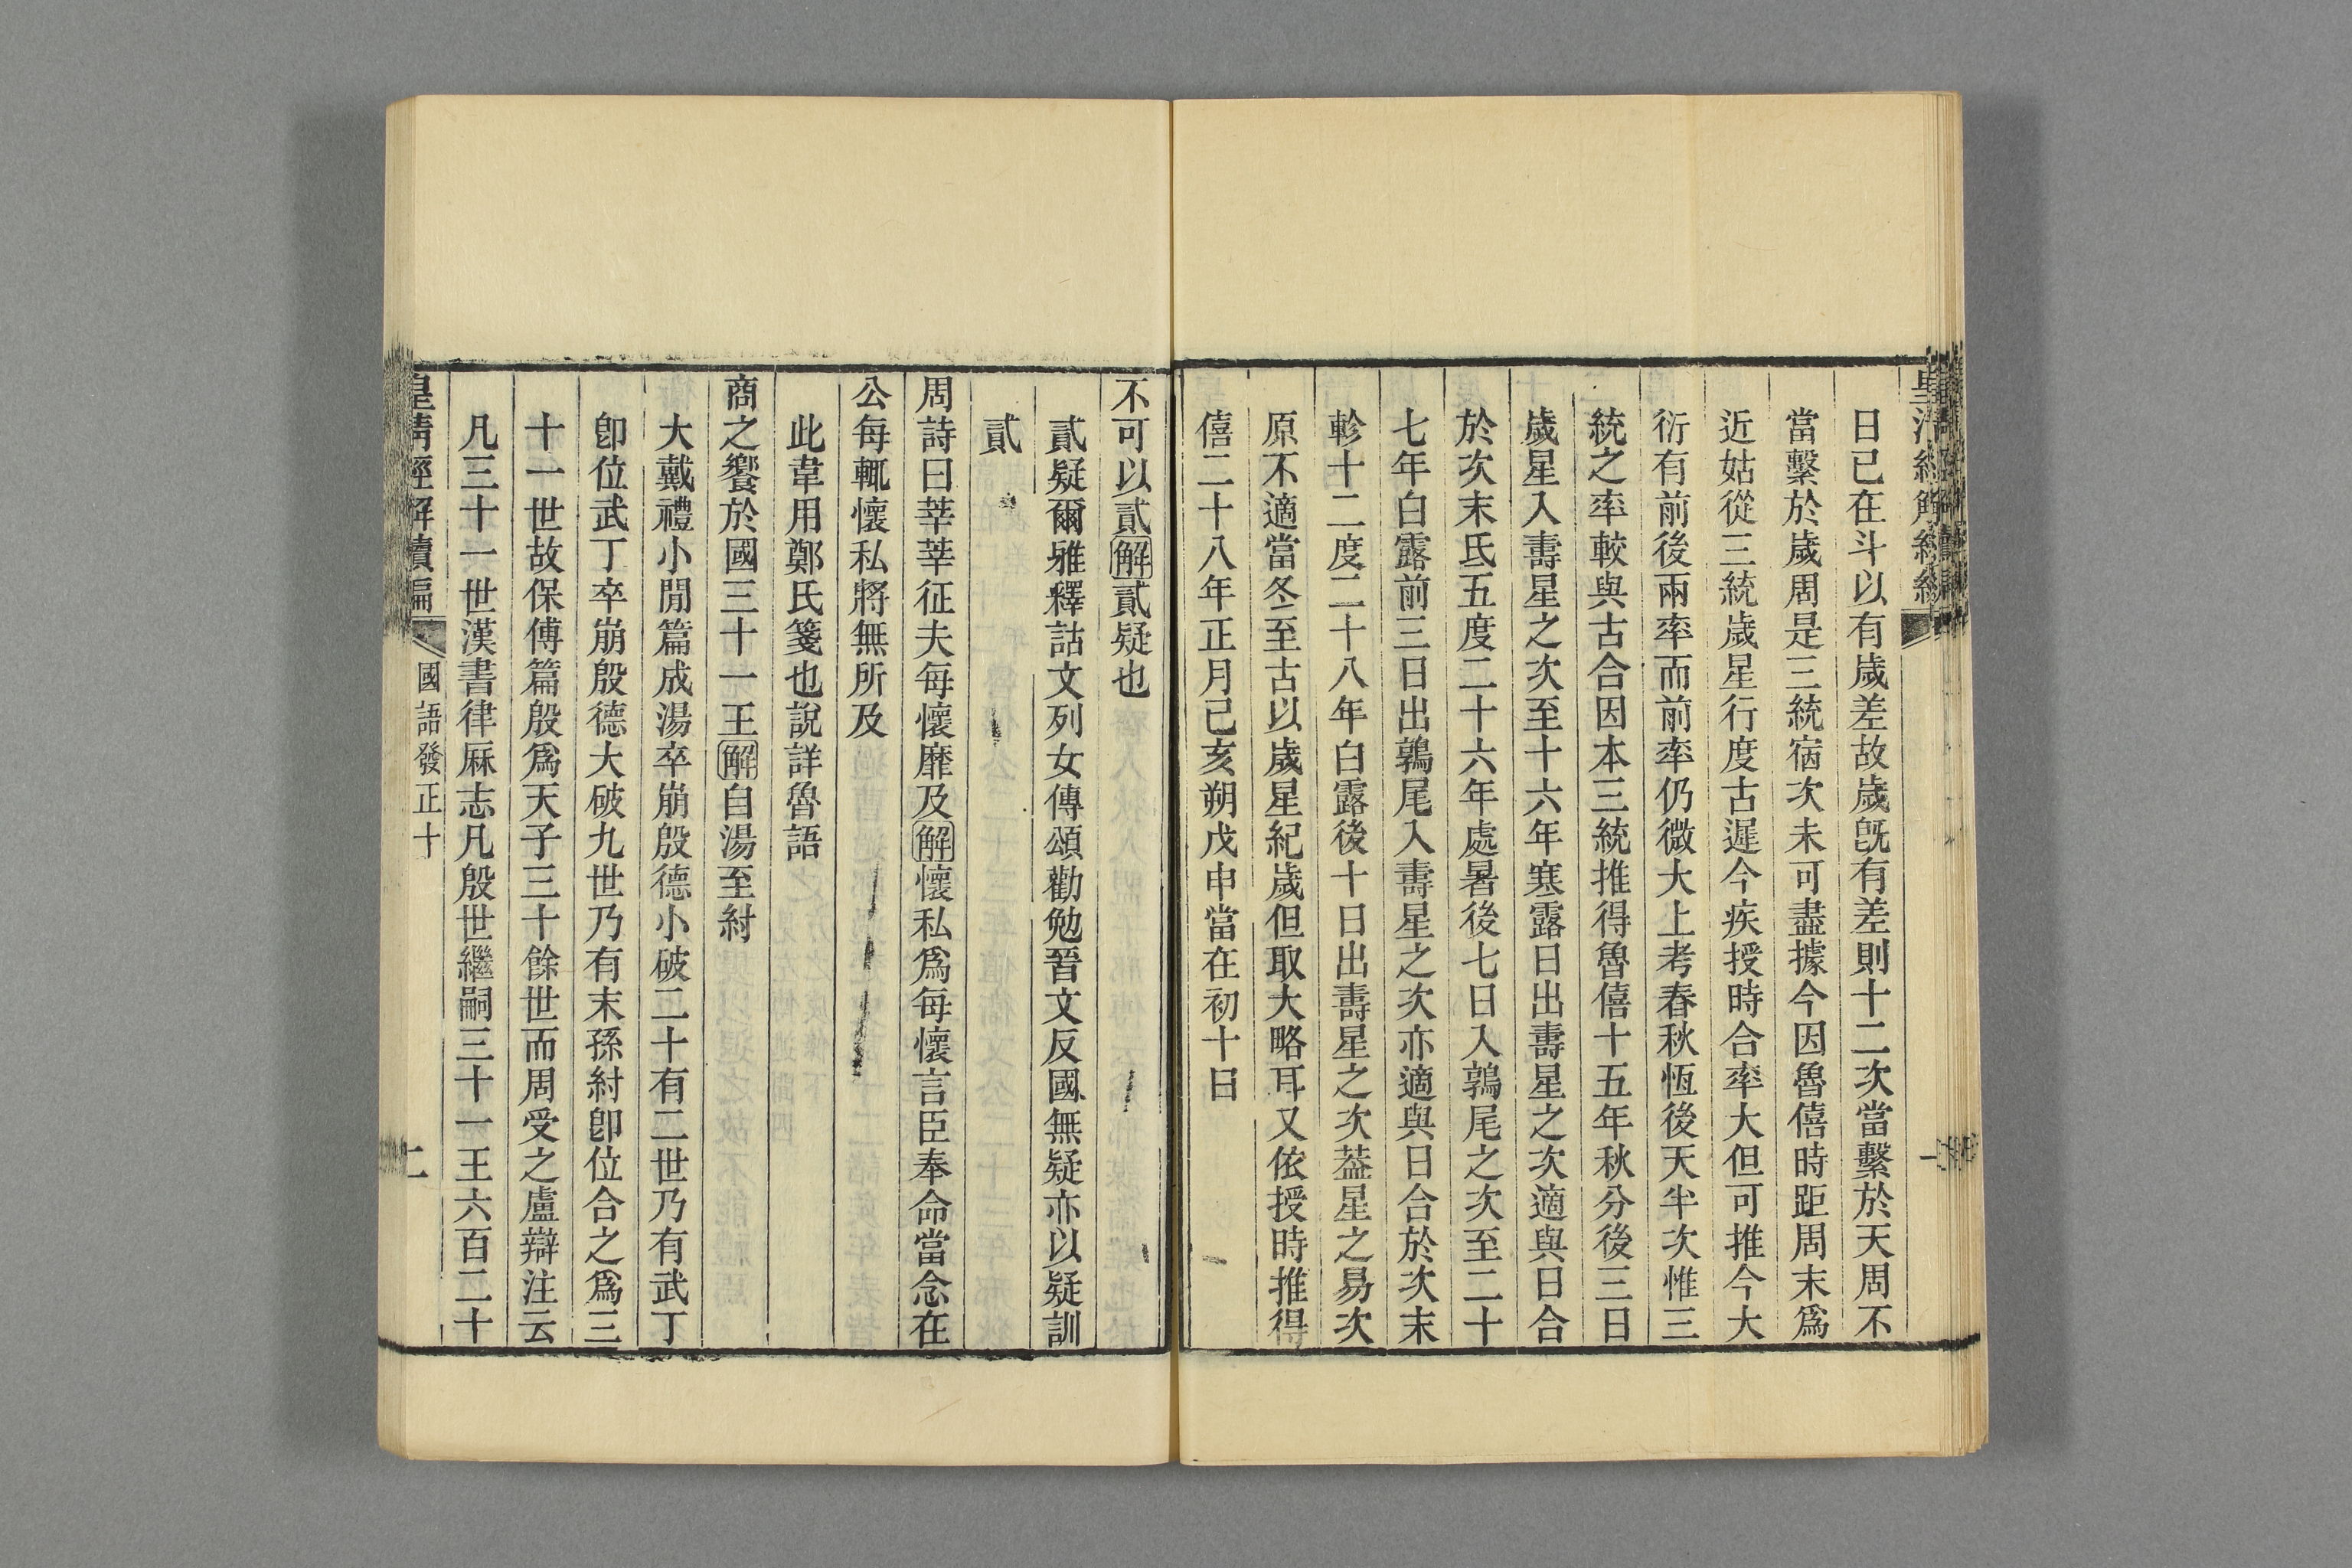 日已在斗以有歲差故歲既有差則十二次當繫於天周不
當繫於歲周是三統宿次未可盡據今因魯僖時距周末爲
近姑從三統歲星行度古遲今疾授時合率大但可推今大
衍有前後兩率而前率仍微大上考春秋恆後天半次惟三
統之率較與古合因本三統推得魯僖十五年秋分後三日
歲星入壽星之次至十六年寒露日出壽星之次適與日合
於次末氐五度二十六年處暑後七日入鶉尾之次至二十
七年白露前三日出鶉尾入壽星之次亦適與日合於次末
軫十二度二十八年白露後十日出壽星之次葢星之易次
原不適當冬至古以歲星紀歲但取大略耳又依授時推得
僖二十八年正月己亥朔戊申當在初十日
不可以貳解貳疑也
貳疑爾雅釋詁文列女傳頌勸勉晉文反國無疑亦以疑訓
貳
周詩曰莘莘征夫每懷靡及解懷私爲每懷言臣奉命當念在
公每輒懷私將無所及
此韋用鄭氏箋也說詳魯語
商之饗於國三十一王解自湯至紂
大戴禮小閒篇成湯卒崩殷德小破二十有二世乃有武丁
卽位武丁卒崩殷德大破九世乃有末孫紂卽位合之爲三
十一世故保傅篇殷爲天子三十餘世而周受之盧辯注云
凡三十一世漢書律厤志凡殷世繼嗣三十一王六百二十
皇清經解續編 國語發正十 二